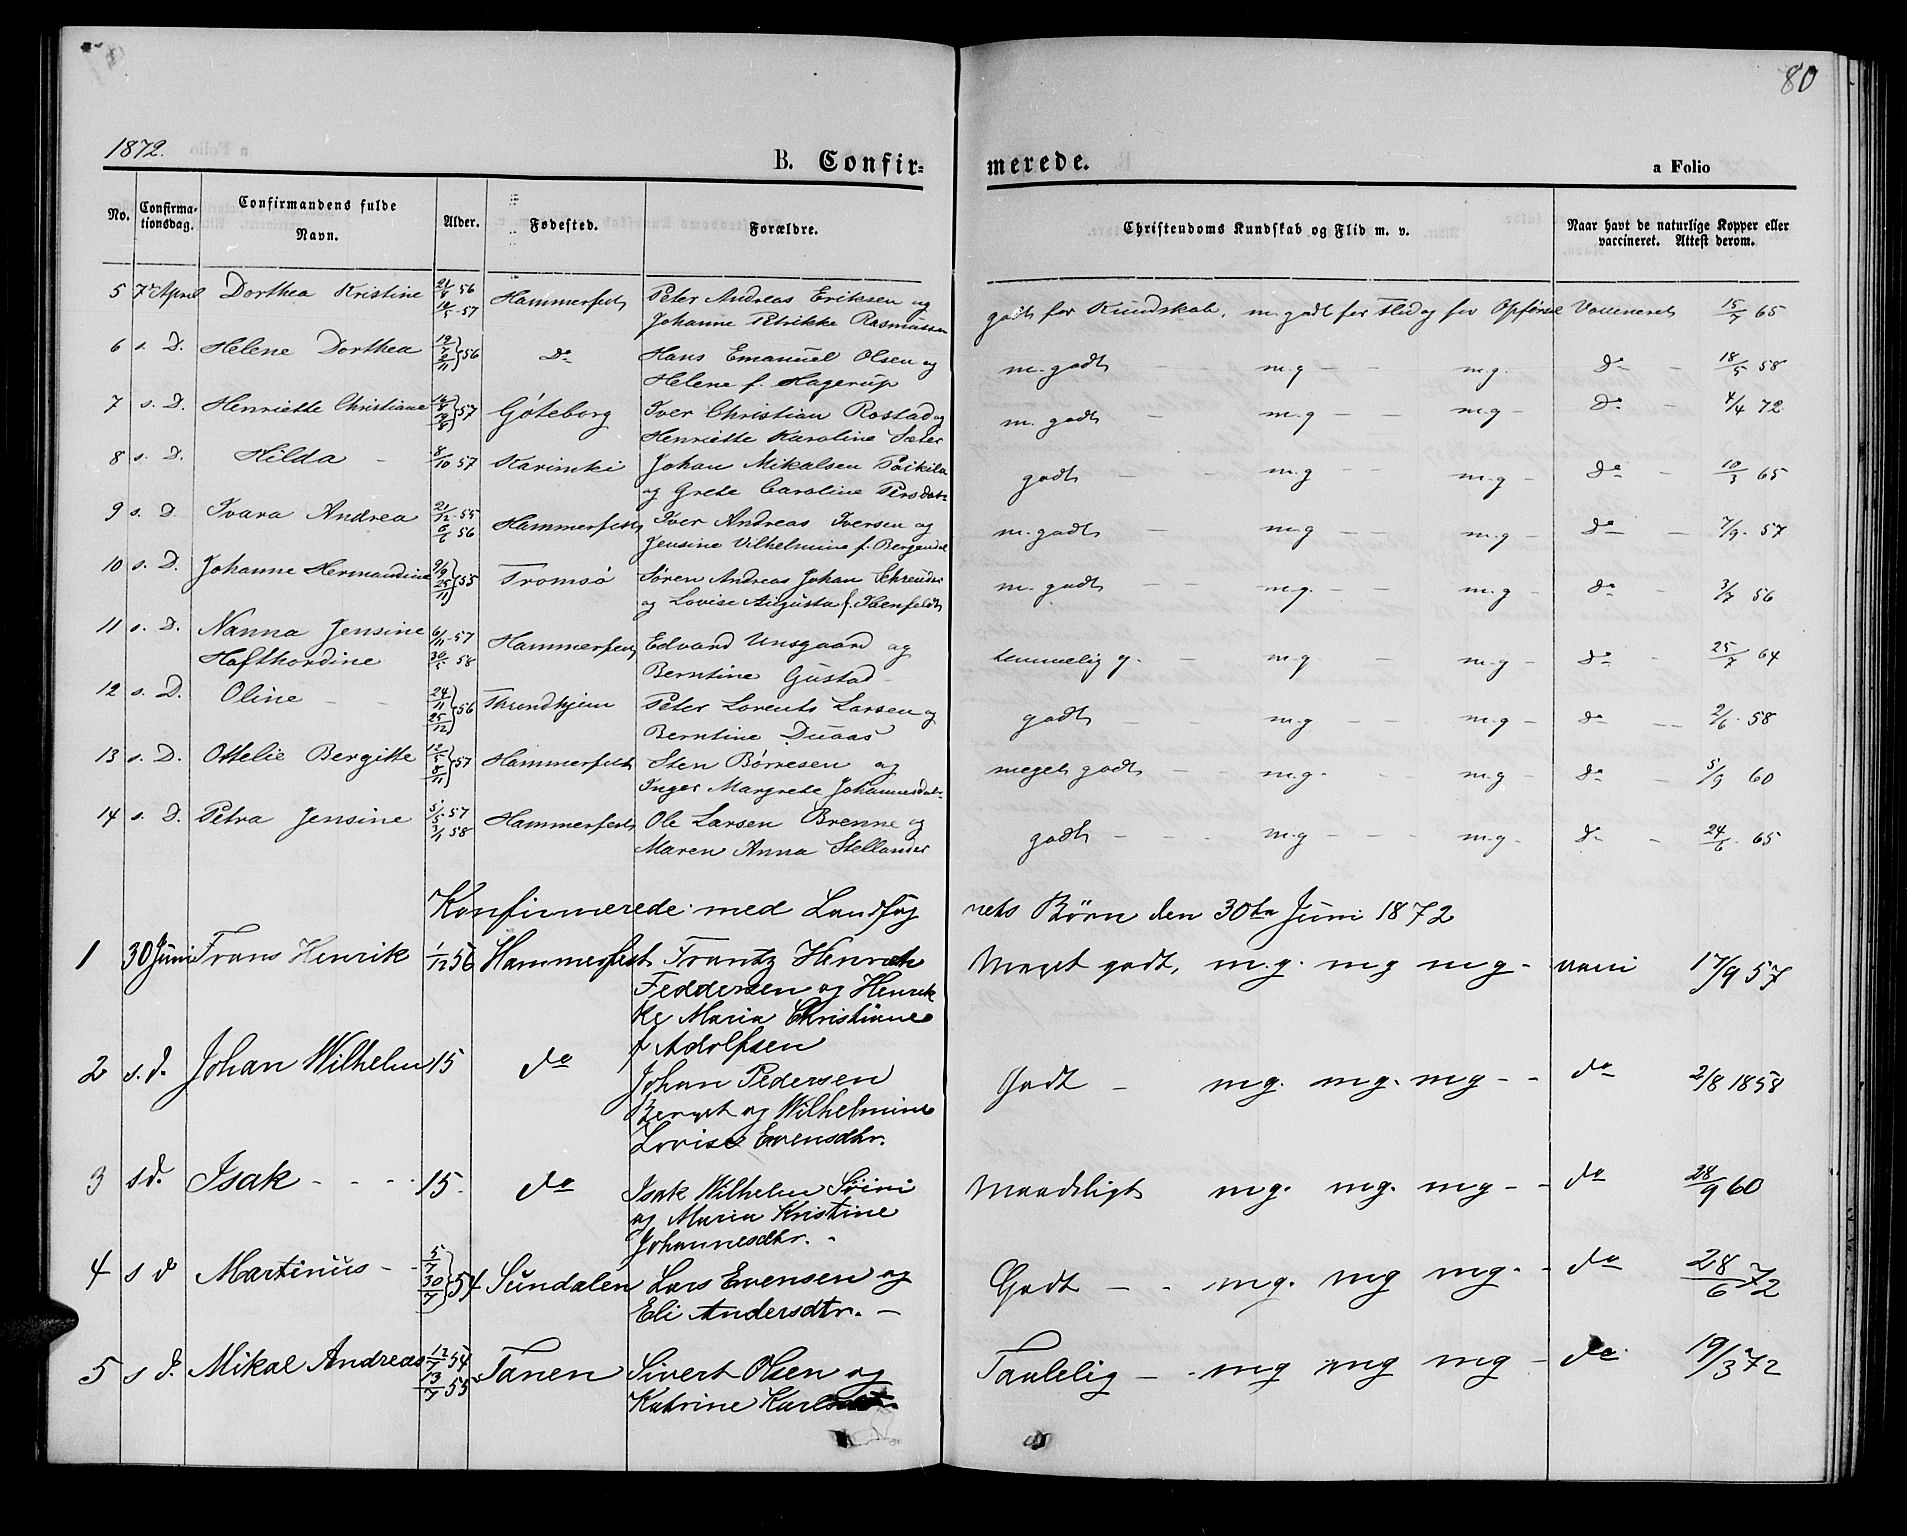 80
1872.
B. Confir= merede. a Folio
No. Confirma-tionsdag. Confirmandens fulde Navn. Alder. Fødested. Forældre. Christendoms Kundskab og Flid m. v. Naar havt de naturlige Kopper eller vaccineret. Attest derom.
5 7de April Dorthea Kristine 56 57 Hammerfest Peter Andreas Eriksen og godt for Kundskab, m. godt for Flid og for Opførsel Vaccineret 15/7 65
Johanne Petrikke Rasmussen
6 s. D. Helene Dorthea 56 Do Hans Emanuel Olsen og m. godt - m.g - - m.g. do - 18/5 58
Helene f. Hagerup
7 s. D. Henriette Christiane 57 Göteborg Iver Christian Rostad og m. godt - m.g - - m.g - do - 4/4 72
Henriette Karoline Sæter
8 s. D. Hilda - 8/10 57 Karinski Johan Mikalsen godt - m.g - m.g - do - 10/3 65
og Grete Caroline Persdatr
9 s. D. Ivara Andrea 21/12 55 6/6 56 Hammerfest Iver Andreas Iversen og m. godt - m.g - m.g - do - 7/9 57
Jensine Vilhelmine f. Bergendal
10 s. D. Johanne Hermandine 9/9 25/11 } 55 Tromsø Søren Andreas Johan Schreuder m. godt - m.g. - m.g - do - 3/7 56
og Lovise Augusta f. Isenfeldt
11 s. D. Nanna Jensine 6/11 57 Hammerfest Edvard Unsgaard og temmelig g. - m.g - m.g - do - 25/7 64
Hafthordine 30/5 58 Berntine Gustad
12 s. D. Oline - - 24/11 25/12 } 56 Throndhjem Peter Lorents Larsen og godt - m.g - - m.g - do -- 2/6 58
Berntine Duaas
13 s. D. Ottelie Bergitte 12/5 8/11 } 57 Hammerfest Sten Børresen og meget godt - - m.g. - m.g - do - 5/9 60
Inger Margrete Johannesdatr
14 s. D. Petra Jensine 5/5 57 3/1 58 Hammerfest Ole Larsen Brenne og godt - - - m.g - - - m.g - do - 24/6 65
Maren Anna Stellander
Konfirmerede med Landsog nets Børn den 30te Juni 1872
1 30 Juni Frans Henrik 1/12 56 Hammerfest Frantz Henrik Meget godt, m.g. m g m g - vacci 17/9 57
Feddersen og Henrik
ke Maria Christiane
f Adolfsen
2 s. d. Johan Wilhelm 15 do Johan Pedersen Godt - m g. m g. m g - - do 2/8 1858
Berget og Wilhelmine
Lovise Evensdtr.
3 s d. Isak - - - - 15. do Isak Wilhelm Maadeligt m g. m g. m g - - do 28/9 60
og Maria Kristine
Johannesdtr. -
4 s d Martinus - - 5/7 30/7 } 54 Sundalen Lars Evensen og Godt - - m g. m g m g. - do 28/6 72
Eli Andersdtr. -
5 s d. Mikal Andreas 12/7 54 13/7 55 Tanen Sivert Olsen og Taalelig - - m g m g m g - do 19/3 72
Katrine